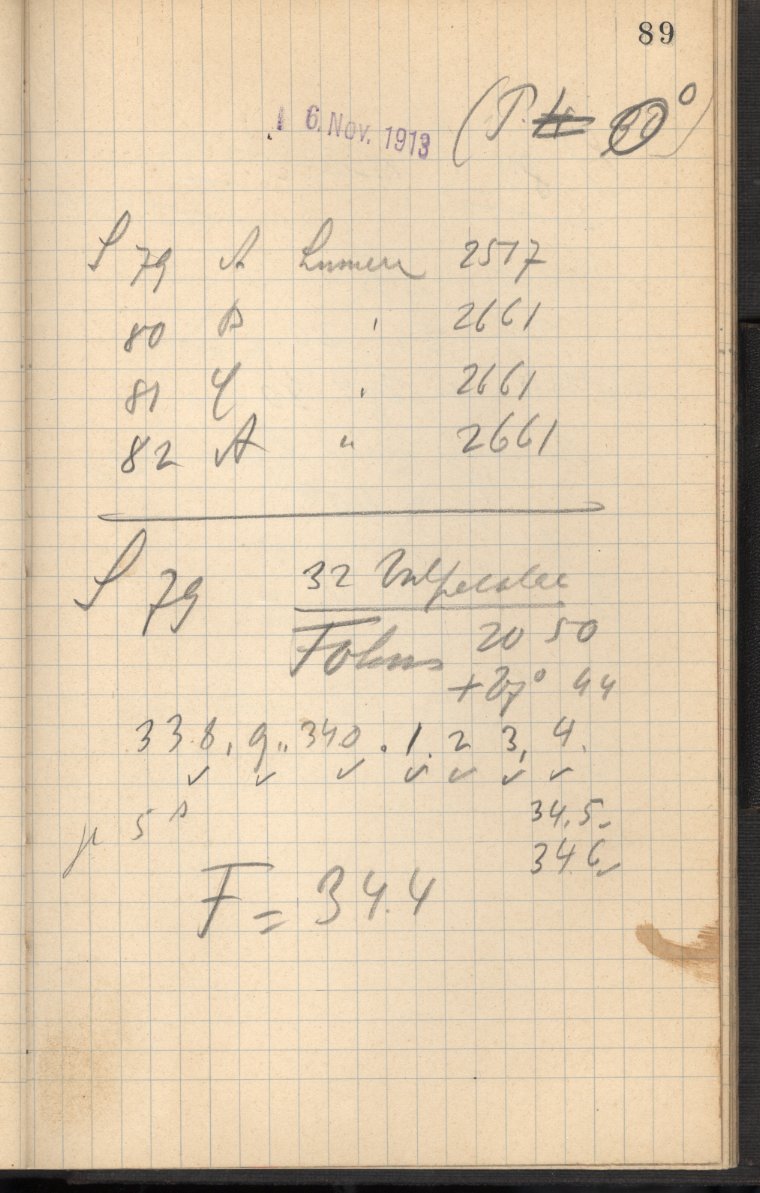 89
6. Nov. 1913
(T.
S 79 A Lumiere 2517
80 B " 2661
81 C " 2661
82 A " 2661
S 79 32
Fokus 20 50
+ 44
33.8, 9,, 34.0 . 1. 2 3, 4.
✓ ✓ ✓ ✓ ✓ ✓ ✓
34.5.
je 5 s
34.6
F = 34.4